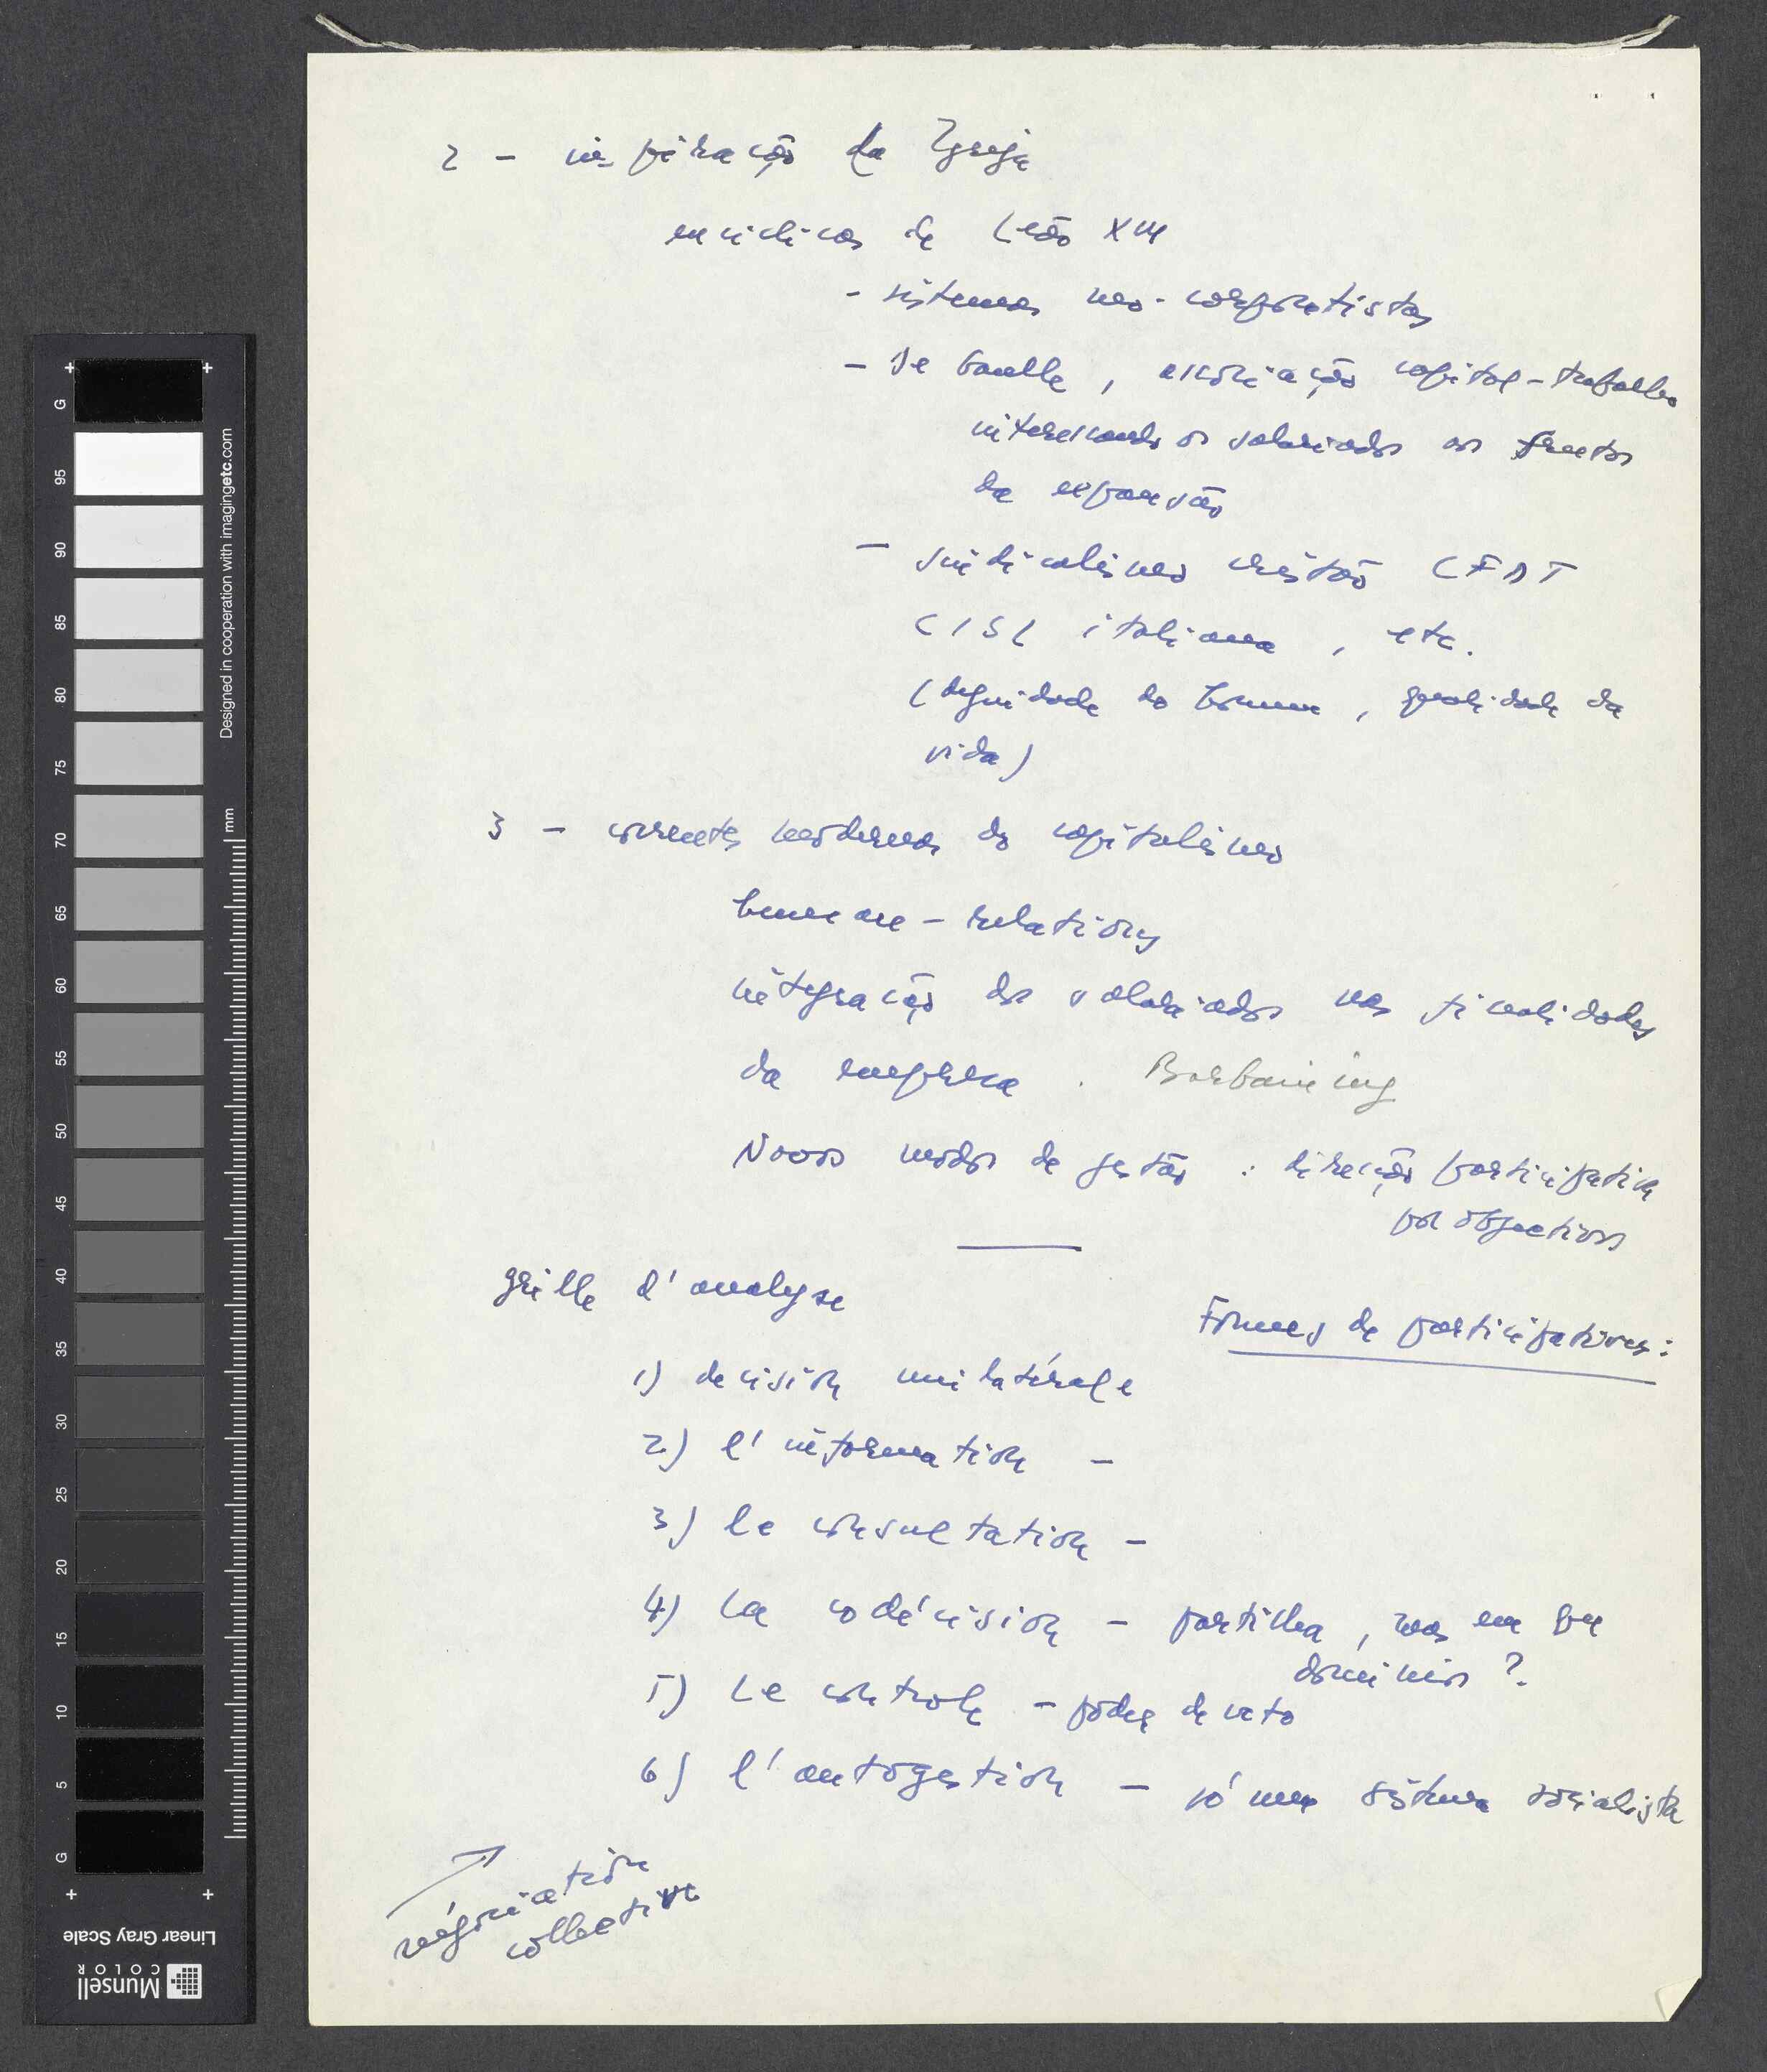 2 - inspiração da Igreja
encíclicas de Leão XIII
- sistemas neo-corporatistas
- De Gaulle, associação capital-trabalho
interessando os salariados os fructos
da expansão
- sindicalismo cristão CFDT
CISL italiana, etc.
(dignidade do homem, qualidade da
vida)
3 - correntes modernas do capitalismo
human-relations
integração dos salariados nas finalidades
da empresa.
Novos modos de gestão : direcção participativa
por objectivos
grille d'analyse
Formes de participation:
1) decision unilatérale
2) l'information -
3) la consultation -
4) La codécision - partilha, mas em que
domínios ?
5) Le controle - poder de veto
6) l'autogestion - só num sistema socialista
négociation
collective
G
95
90
85
80
75
70
65
60
55
50
45
40
35
30
25
20
15
10
5
G
mm
Designed in cooperation with imagingetc.com
Linear Gray Scale
Munsell
COLOR